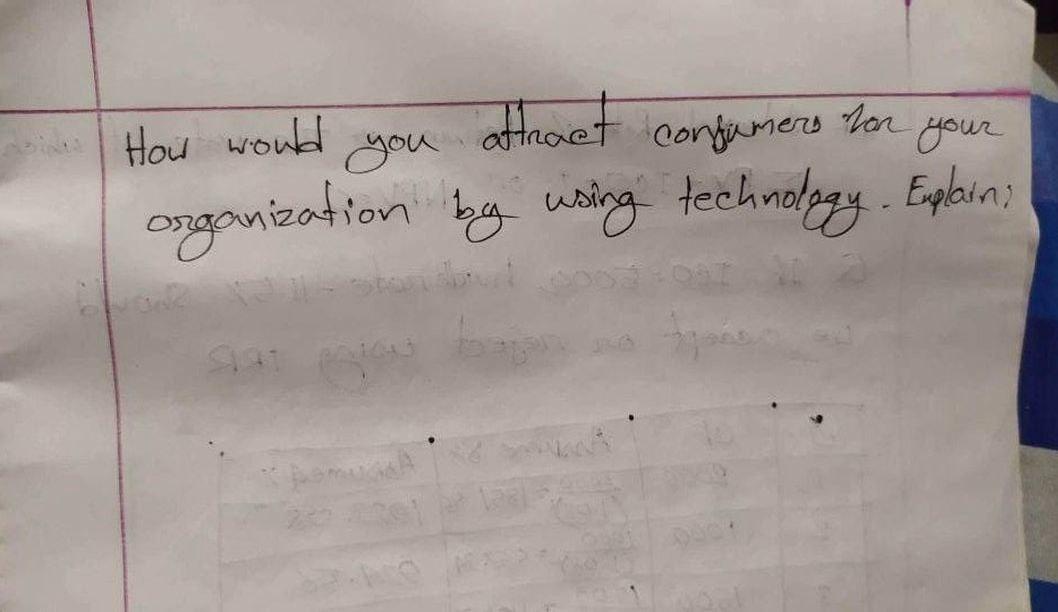 How would you attract consumers for your
organization by using technology. Explain;